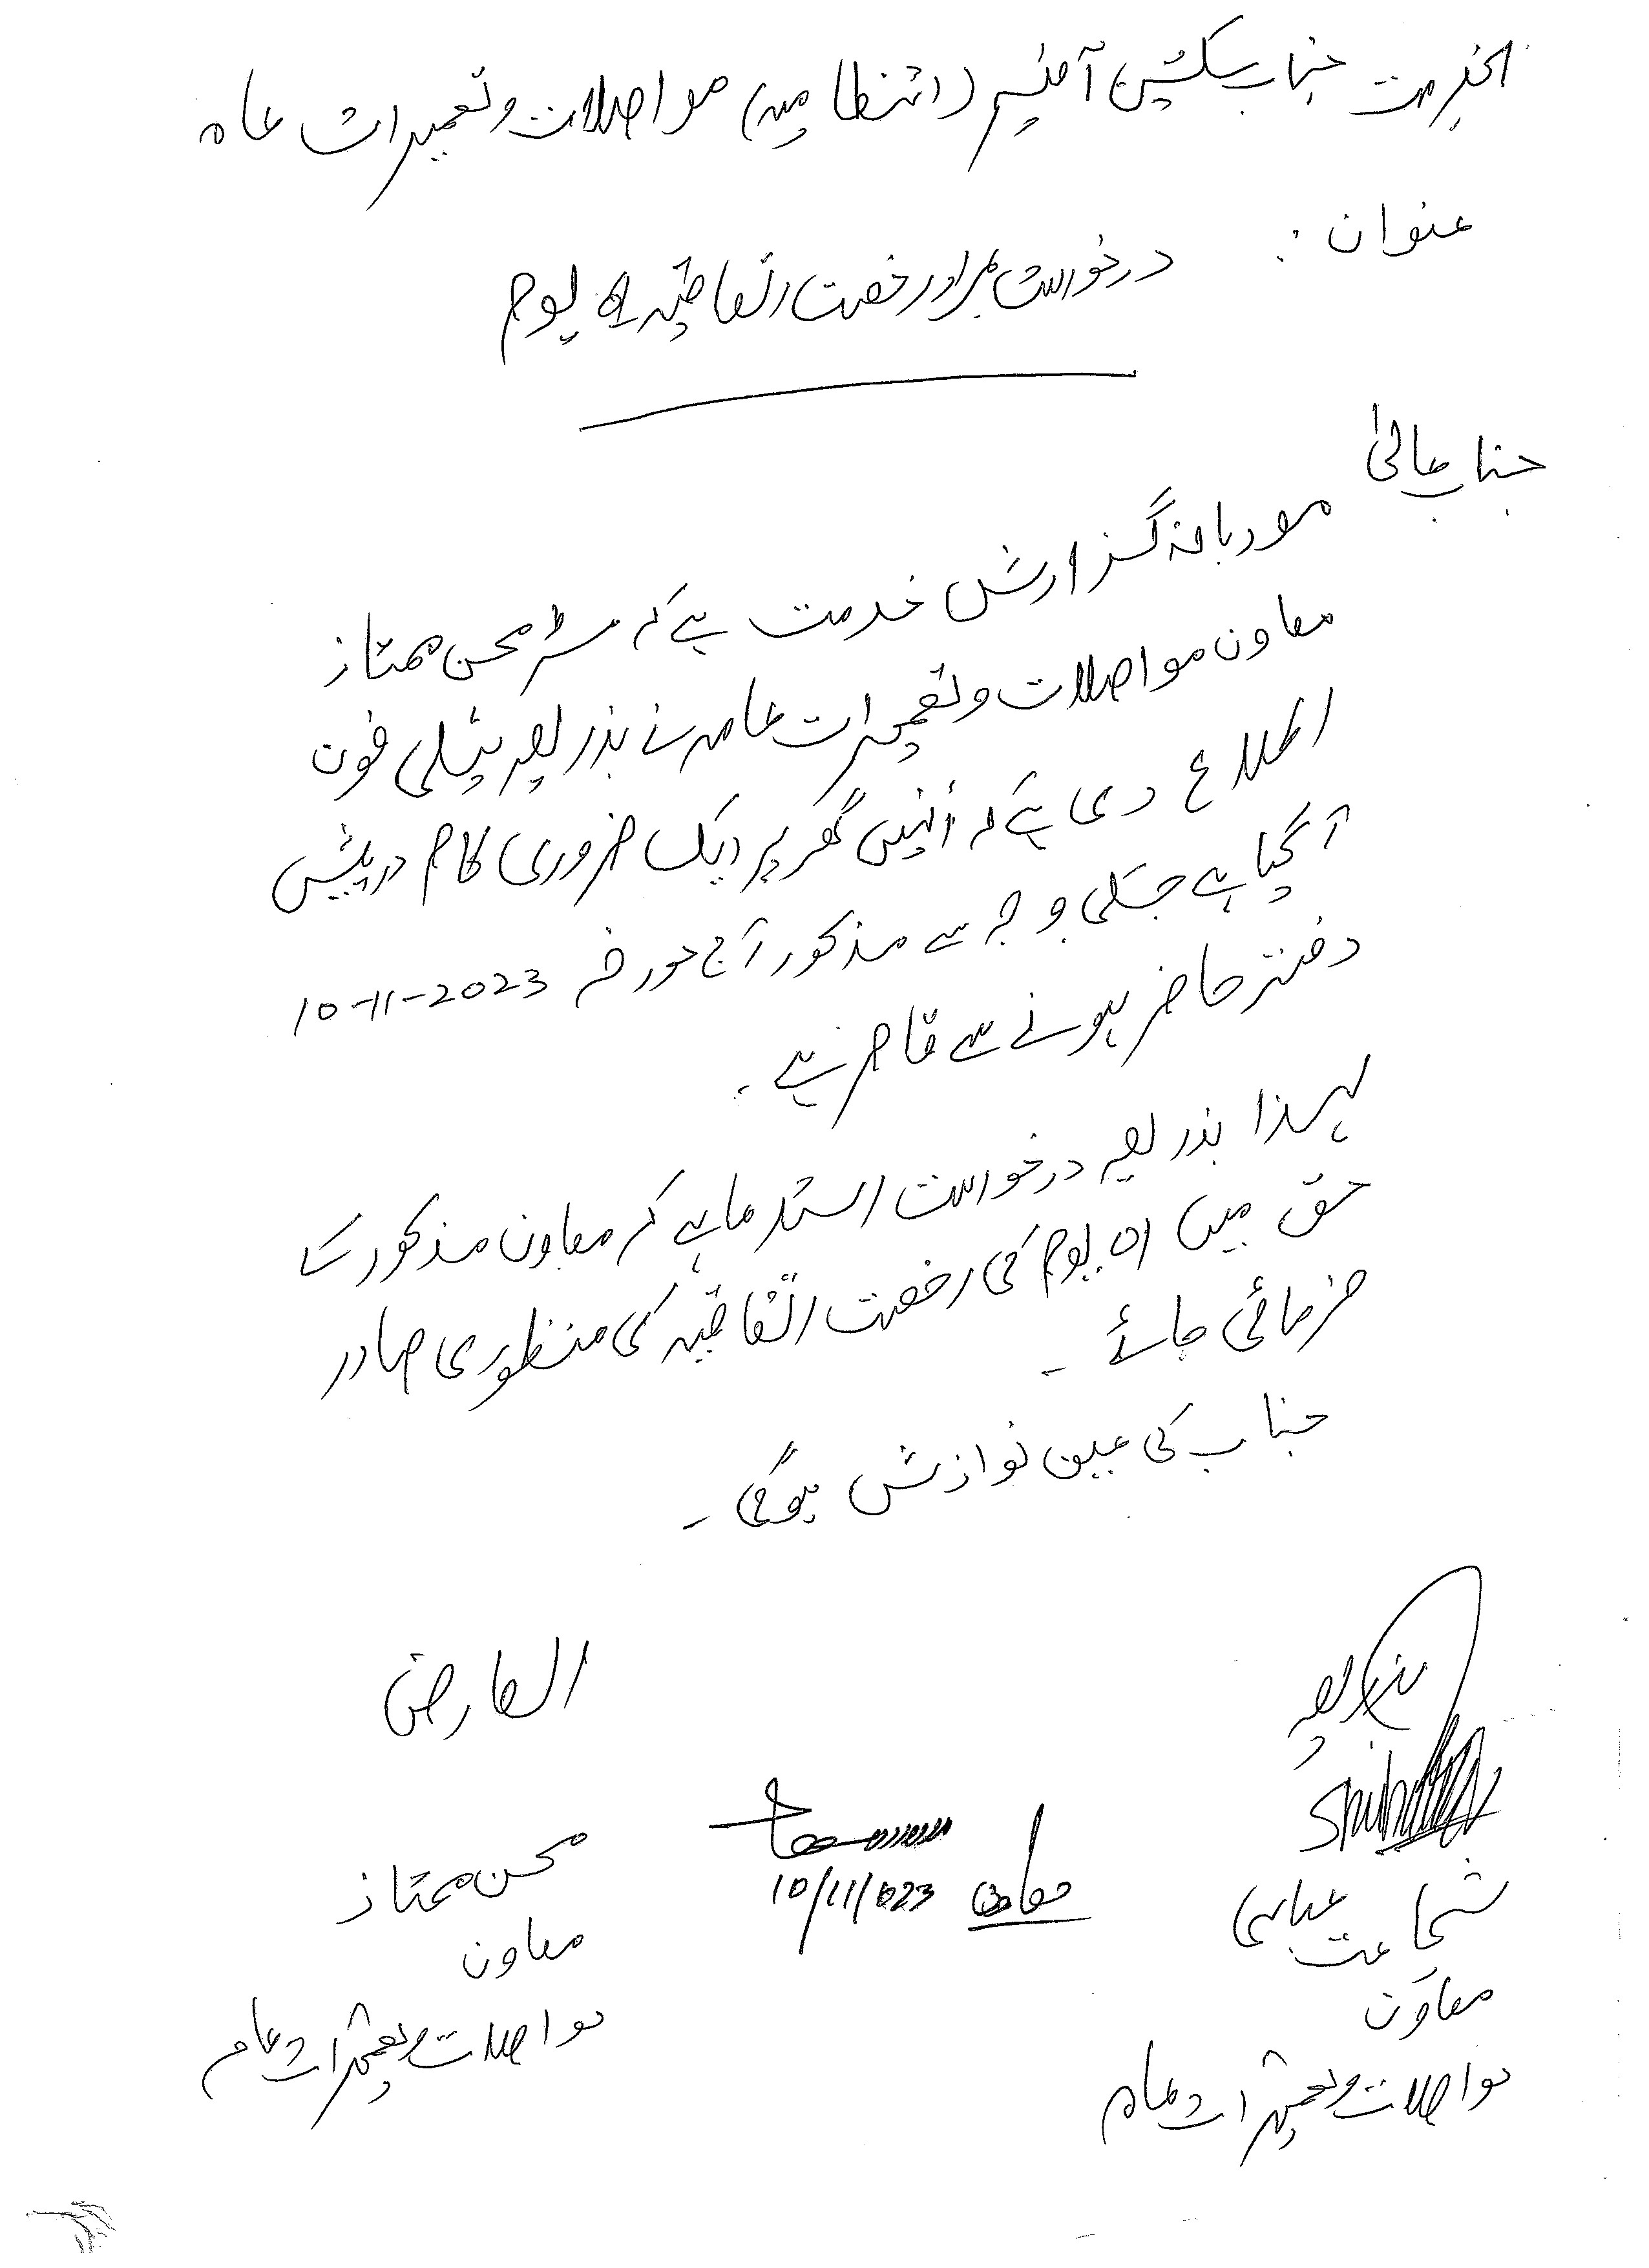 بخدمت جناب سیکشن آفیسر (انتظامیہ) مواصلات و تعمیرات عامہ
عنوان: درخواست بمراد رخصت اتفاقیہ 01 یوم
جناب عالی
مودبانہ گزارش خدمت ہے کہ مسٹر محسن ممتاز
معاون مواصلات و تعمیرات عامہ نے بذریعہ ٹیلی فون
اطلاع دی ہے کہ اُنہیں گھر پر ایک ضروری کام درپیش
آگیا ہے جسکی وجہ سے مذکور آج مورخہ 10-11-2023
دفتر حاضر ہونے سے قاصر ہے۔
لہذا بذریعہ درخواست استدعا ہے کہ معاون مذکور کے
حق میں 01 یوم کی رخصت اتفاقیہ کی منظوری صادر
فرمائی جائے۔
جناب کی عین نوازش ہوگی۔
العارض
محسن ممتاز
معاون
مواصلات و تعمیرات عامہ
بذریعہ
شجاعت عباسی
معاون
مواصلات و تعمیرات عامہ
معاون
10/11/023